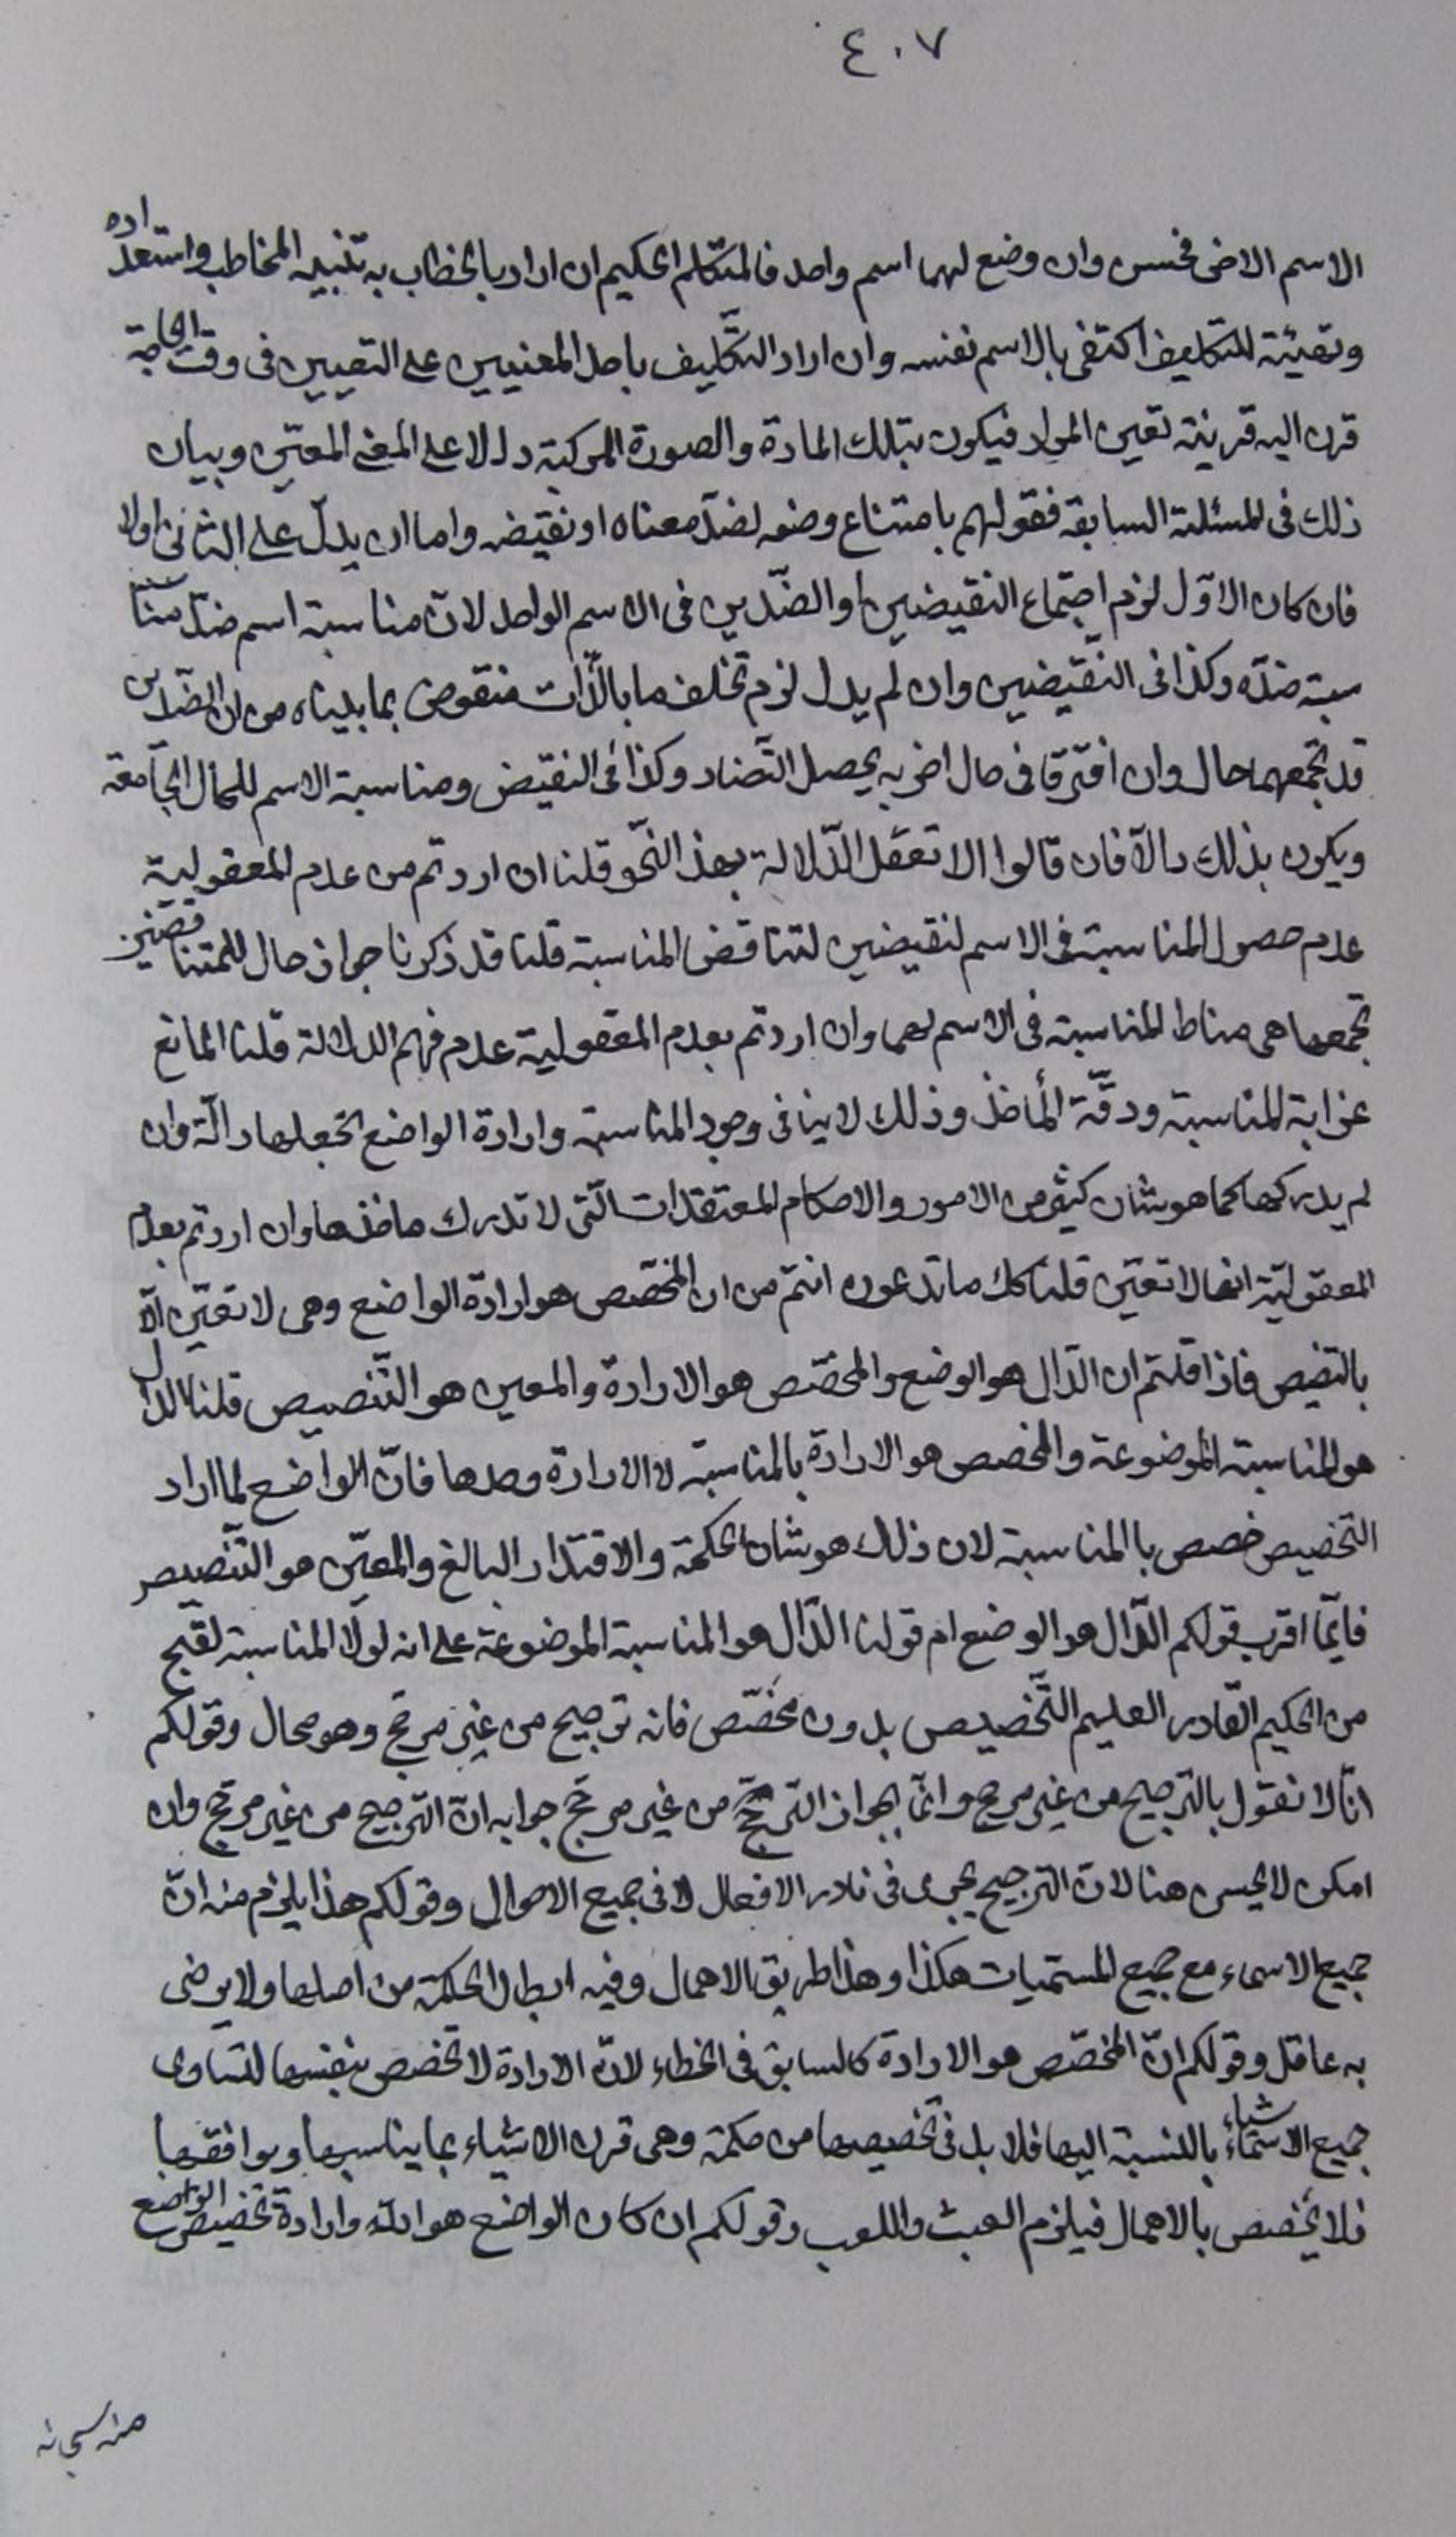 ٤٠٧
الاسم الاخر فحسن وان وضع لهما اسم واحد فالمتكلم الحكيم ان اراد بالخطاب به تنبيه المخاطب واستعداده
وتهيئة للتكليف اكتفى بالاسم نفسه وان اراد التكليف باحد المعنيين على التعيين فى وقت الحاجة
قرن اليه قرينة تعين المراد فيكون بتلك المادة والصورة المركبة دالا على المعنى المعين وبيان
ذلك فى المسئلة السابقة فقولهم بامتناع وضعه لضد معناه او نقيضه واما ان يدل على الثانى اولا
فان كان الاول لزم اجتماع النقيضين او الضدين فى الاسم الواحد لان مناسبة اسم ضد منا
سبة ضده وكذا فى النقيضين وان لم يدل لزم تخلف ما بالذات منقوض بما بيناه من ان الضدين
قد تجمعهما حال وان افترقا فى حال اخر به يحصل التضاد وكذا فى النقيض ومناسبة الاسم للحال الجامعة
ويكون بذلك دالا فان قالوا لا تعقل الدلالة بهذا النحو قلنا ان اردتم من عدم المعقولية
عدم حصول المناسبة فى الاسم لنقيضين لتناقض المناسبة قلنا قد ذكرنا جواز حال للمتناقضين
تجمعهما هى مناط المناسبة فى الاسم لهما وان اردتم بعدم المعقولية عدم فهم الدلالة قلنا المانع
غرابة المناسبة ودقة المأخذ وذلك لا ينافى وجود المناسبة وارادة الواضع لجعلها دالة وان
لم يدركها كما هو شان كثير من الامور والاحكام المعتقدات التى لا تدرك ماخذها وان اردتم بعدم
المعقولية انها لا تعين قلنا كك ما تدعون انتم من ان المخصص هو ارادة الواضع وهى لا تعين الا
بالتنصيص فاذا قلتم ان الدال هو الوضع والمخصص هو الارادة والمعين هو التنصيص قلنا الدال
هو المناسبة الموضوعة والمخصص هو الارادة بالمناسبة لا الارادة وحدها فان الواضع لما اراد
التخصيص خصص باالمناسبة لان ذلك هو شان الحكمة والاقتدار البالغ والمعين هو التنصيص
فايما اقرب قولكم الدال هو الوضع ام قولنا الدال هو المناسبة الموضوعة على انه لولا المناسبة لقبح
من الحكيم القادر العليم التخصيص بدون مخصص فانه ترجيح من غير مرجح وهو محال وقولكم
انا لا نقول بالترجيح من غير مرجح وانما بجواز الترجح من غير مرجح جوابه ان الترجيح من غير مرجح وان
امكن لا يحسن هنا لان الترجيح يجرى فى نادر الافعال لا فى جميع الاحوال وقولكم هذا يلزم منه ان
جميع الاسماء مع جميع المسميات هكذا وهذا طريق الاهمال وفيه ابطال الحكمة من اصلها ولا يرضى
به عاقل وقولكم ان المخصص هو الارادة كالسابق فى الخطاء لان الارادة لا تخصص بنفسها لتساوى
جميع الاشياء بالنسبة اليها فلا بد فى تخصيصها من حكمة وهى قرن الاشياء بما يناسبها ويوافقها
فلا يخصص بالاهمال فيلزم العبث واللعب وقولكم ان كان الواضع هو الله وارادة تخصيص الواضع
منه سبحانه